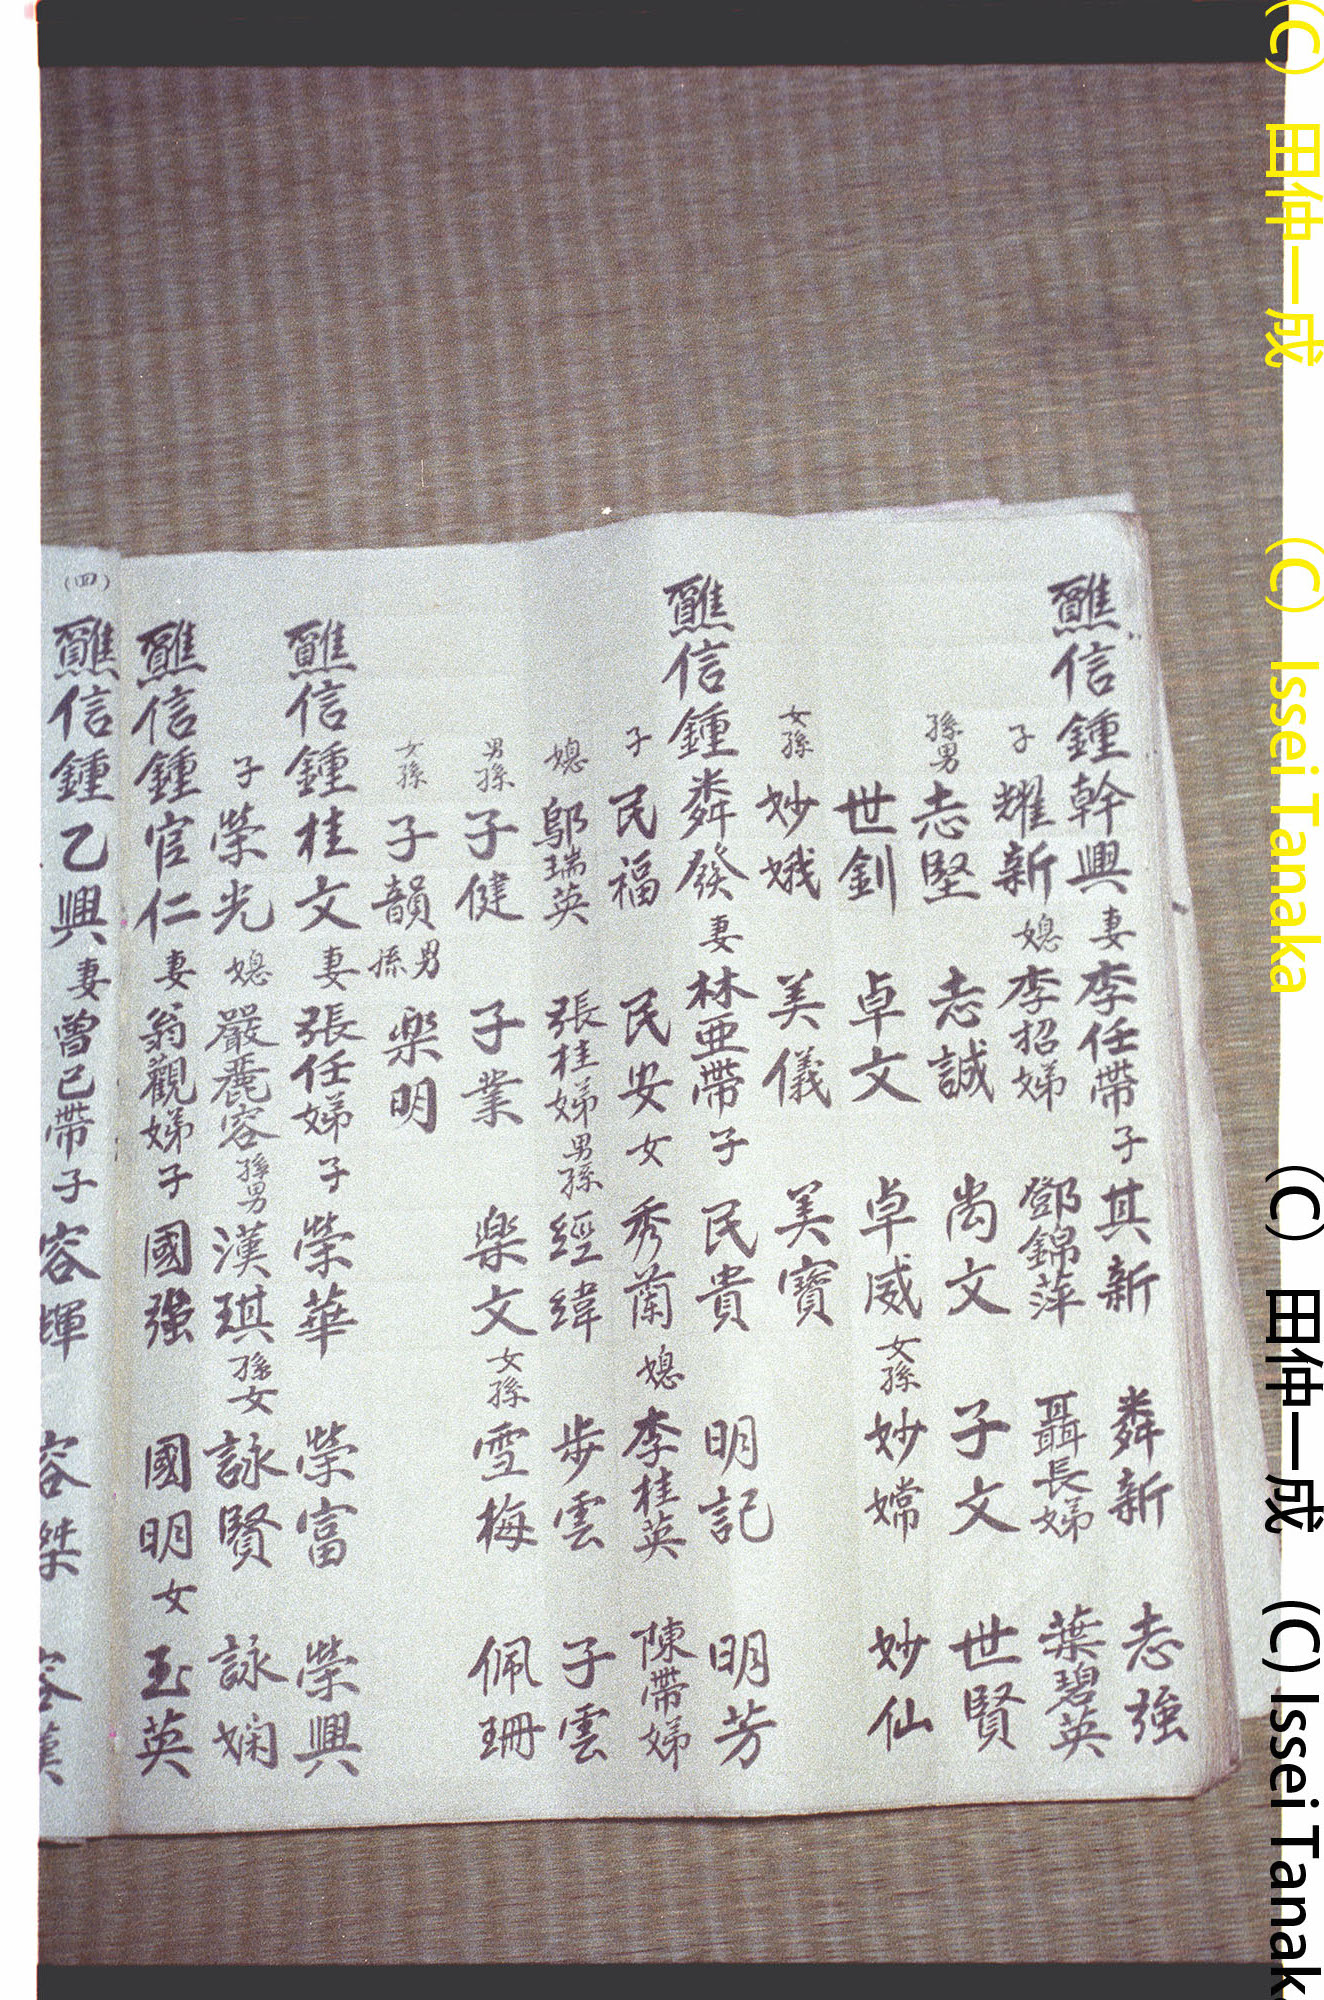 醮信鍾幹興妻李任帶子其新 粦新 志強
子耀新媳李招娣 鄧錦萍 聶長娣 葉碧英
孫男志堅 志誠 尚文 子文 世賢
世釗 卓文 卓威女孫妙嫦 妙仙
女孫妙娥 美儀 美寶
醮信鍾粦發妻林亜帶子民貴 明記 明芳
子民福 民安女秀蘭媳李桂英 陳帶娣
媳鄔瑞英 張桂娣男孫經緯 步雲 子雲
男孫子健 子業 楽文女孫雪梅 佩珊
女孫子韻男孫楽明
醮信鍾桂文妻張任娣子榮華 榮富 榮興
子榮光媳嚴麗容孫男漢琪孫女詠賢 詠嫻
醮信鍾官仁妻翁觀娣子國強 國明女玉英
(四)
醮信鍾乙興妻曾已帶子容輝 容桀 容漢
(C) 田仲一成 (C) Issei Tanaka
(C) 田仲一成 (C) Issei Tanak